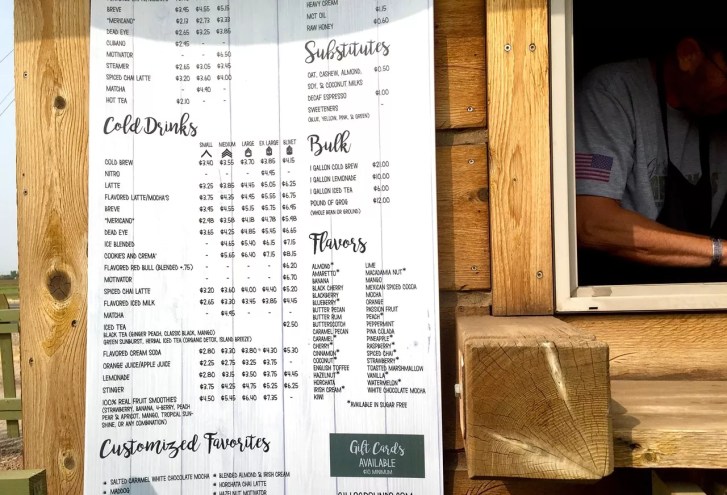 BREVE $3.95 $4.55 $5.15
"MERICANO" $2.13 $2.73 $3.33
DEAD EYE $2.65 $3.25 $3.85
CUBANO $2.45 - -
MOTIVATOR - - $6.50
STEAMER $2.65 $3.05 $3.45
SPICED CHAI LATTE $3.20 $3.60 $4.00
MATCHA - $4.40 -
HOT TEA $2.10 - -
Cold Drinks
SMALL MEDIUM LARGE EX LARGE BLIVET
COLD BREW $3.40 $3.55 $3.70 $3.85 $4.15
NITRO - - - $4.95 -
LATTE $3.25 $3.85 $4.45 $5.05 $6.25
FLAVORED LATTE/MOCHA'S $3.75 $4.35 $4.95 $5.55 $6.75
BREVE $3.95 $4.55 $5.15 $5.75 $6.95
"MERICANO" $2.98 $3.58 $4.18 $4.78 $5.98
DEAD EYE $3.65 $4.25 $4.85 $5.45 $6.65
ICE BLENDED - $4.65 $5.40 $6.15 $7.15
COOKIES AND CREMA' - $5.65 $6.40 $7.15 $8.15
FLAVORED RED BULL (BLENDED +.75) $6.20
MOTIVATOR - - - - $6.70
SPICED CHAI LATTE $3.20 $3.60 $4.00 $4.40 $5.20
FLAVORED ICED MILK $2.65 $3.30 $3.45 $3.85 $4.45
MATCHA - $4.95 - - -
ICED TEA $2.50
BLACK TEA (GINGER PEACH, CLASSIC BLACK, MANGO)
GREEN SUNBURST, HERBAL ICED TEA (ORGANIC DETOX, ISLAND BREEZE)
FLAVORED CREAM SODA $2.80 $3.30 $3.80 $4.30 $5.30
ORANGE JUICE/APPLE JUICE $2.25 $2.75 $3.25 $3.75 -
LEMONADE $2.80 $3.15 $3.50 $3.75 $4.45
STINGER $3.75 $4.25 $4.75 $5.25 $6.25
100% REAL FRUIT SMOOTHIES $4.50 $5.45 $6.40 $7.35 -
(STRAWBERRY, BANANA, 4-BERRY, PEACH
PEAR & APRICOT, MANGO, TROPICAL SUN-
SHINE, OR ANY COMBINATION)
Customized Favorites
* SALTED CARAMEL WHITE CHOCOLATE MOCHA
* MADDOG
* BLENDED ALMOND & IRISH CREAM
HORCHATA CHAI LATTE
HAZELNUT MOTIVATOR
HEAVY CREAM
MCT OIL $1.15
RAW HONEY $0.60
Substitutes
OAT, CASHEW, ALMOND, $0.50
SOY, & COCONUT MILKS
DECAF ESPRESSO $1.00
SWEETENERS -
(BLUE, YELLOW, PINK, & GREEN)
Bulk
1 GALLON COLD BREW $21.00
1 GALLON LEMONADE $10.00
1 GALLON ICED TEA $6.00
POUND OF GROG $12.00
(WHOLE BEAN OR GROUND)
Flavors
ALMOND*
AMARETTO*
BANANA
BLACK CHERRY
BLACKBERRY
BLUEBERRY*
BUTTER PECAN
BUTTER RUM
BUTTERSCOTCH
CARAMEL PECAN
CARAMEL*
CHERRY*
CINNAMON*
COCONUT*
ENGLISH TOFFEE
HAZELNUT*
HORCHATA
IRISH CREAM*
KIWI
LIME
MACADAMIA NUT*
MANGO
MEXICAN SPICED COCOA
MOCHA
ORANGE
PASSION FRUIT
PEACH*
PEPPERMINT
PINA COLADA
PINEAPPLE*
RASPBERRY*
SPICED CHAI*
STRAWBERRY*
TOASTED MARSHMALLOW
VANILLA*
WATERMELON*
WHITE CHOCOLATE MOCHA
*AVAILABLE IN SUGAR FREE
Gift Cards
AVAILABLE
$10 MINIMUM